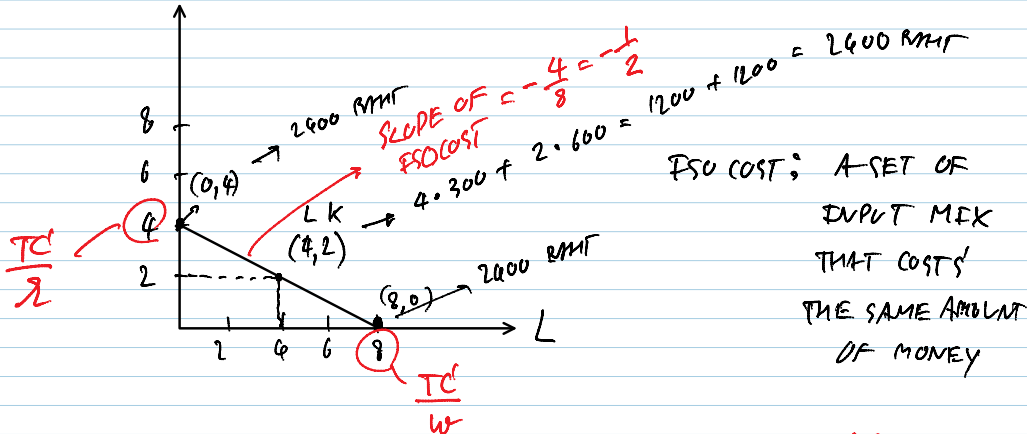 8
6
4
2
2 4 6 8
L
(0,4)
2400 BAHT
SLOPE OF = -4/8 = -1/2
ISOCOST
L K
(4,2)
4·300 + 2·600 = 1200 + 1200 = 2400 BAHT
(8,0)
2400 BAHT
TC/r
TC/w
ISO COST: A SET OF
INPUT MIX
THAT COSTS
THE SAME AMOUNT
OF MONEY